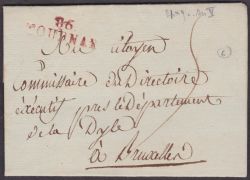 86
TOURNAY
Au Citoyen
Commissaire du Directoire
exécutif près le département
de la Dyle
à Bruxelles